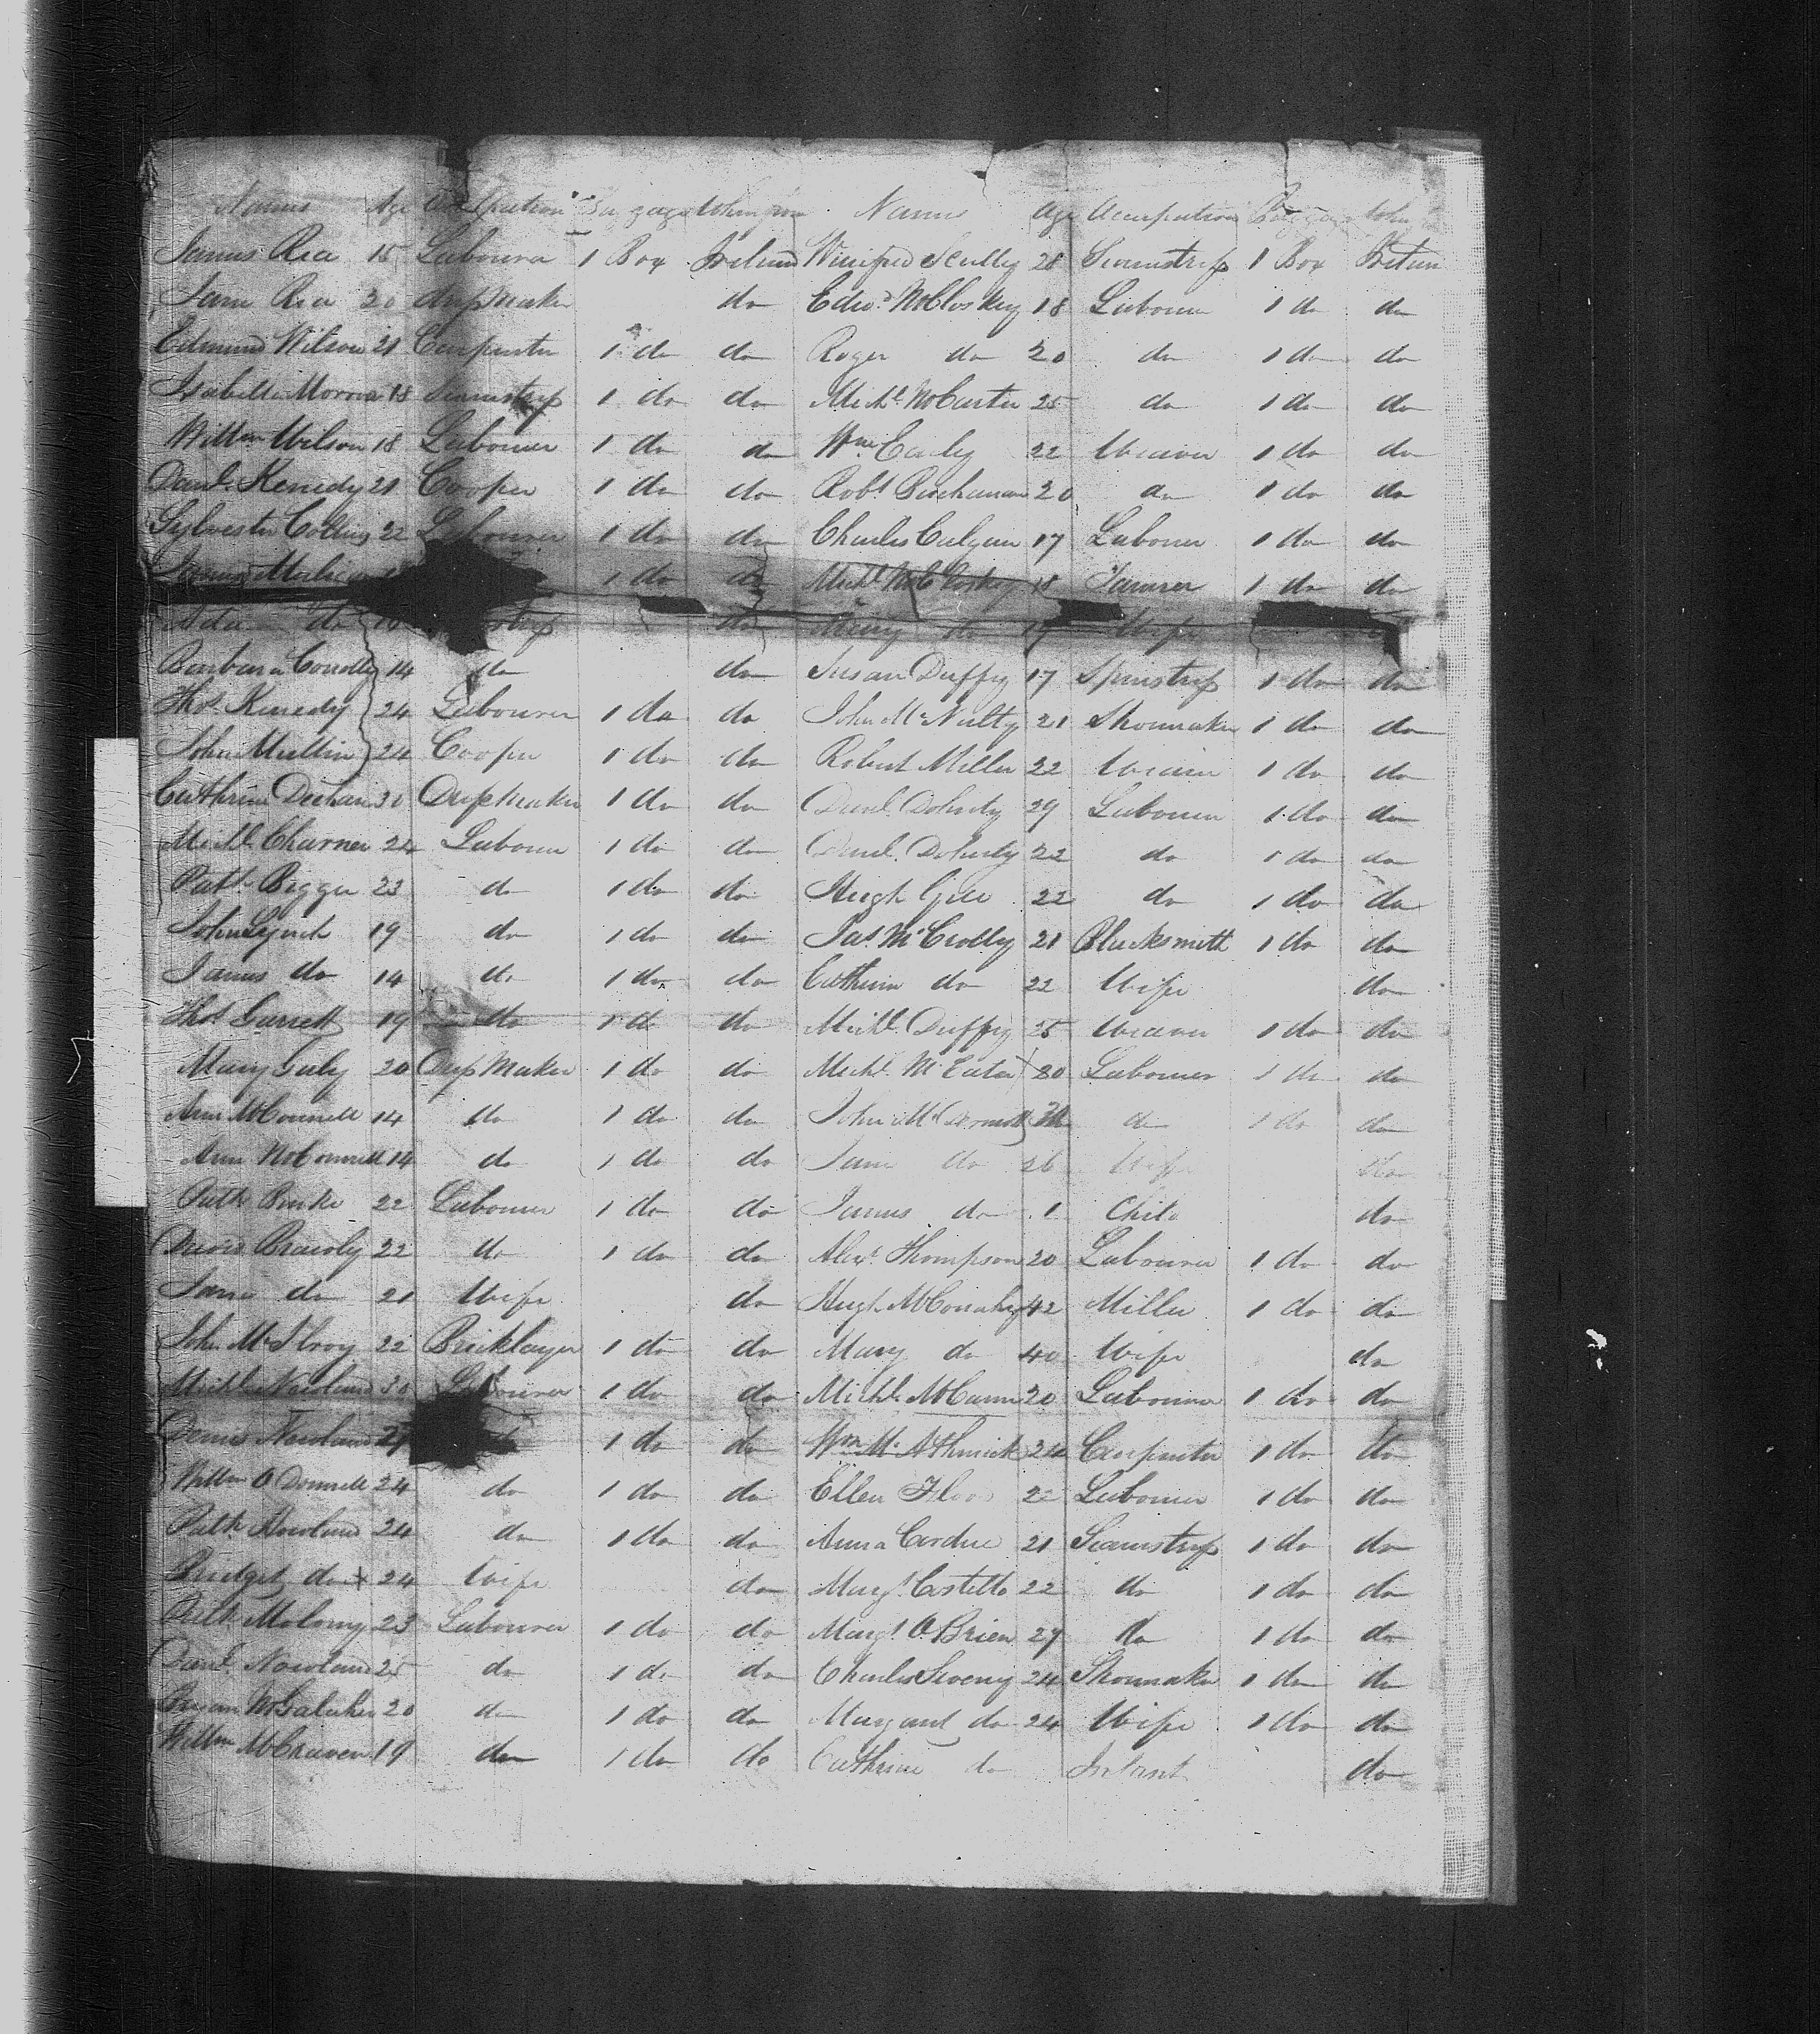 Names Age Occupation Baggage Whenfrom Names Age Occupation Baggage
James Rea 15 Labourer 1 Box Ireland Winifred Scully 28 Seamstress 1 Box
Jane Rea 20 dressmaker do Edwd McCloskey 18 Labourer 1 do do
Edmund Wilson 21 Carpenter 1 do do Roger do 20 do 1 do do
Isabella 18 Seamstress 1 do do Michl McCarter 25 do 1 do do
Willm Wilson 18 Labourer 1 do do Wm 22 Weaver 1 do do
Danl Kenedy 21 Cooper 1 do do Robt Buchanan 20 do 1 do do
Sylvester Collins 22 Labourer 1 do do Charles Culgan 17 Labourer 1 do do
James 1 do do Michl McCloskey 18 Farmer 1 do do
do do Mary do 17 Wife
Barbara Conolly 14 do do Susan Duffy 17 Spinstress 1 do do
Thos Kenedy 24 Labourer 1 do do John McNulty 21 Shoemaker 1 do do
John Mullin 24 Cooper 1 do do Robert Miller 22 Weaver 1 do do
Cathrine 30 Dressmaker 1 do do Danl Doherty 29 Labourer 1 do do
Michl Charner 24 Labourer 1 do do Danl Doherty 22 do 1 do do
Patk 23 do 1 do do Hugh 22 do 1 do do
John Lynch 19 do 1 do do Jas McCrolly 21 Blacksmith 1 do do
James do 14 do 1 do do Cathrine do 22 Wife do
Thos Garrett 19 do 1 do do Michl Duffy 25 Weaver 1 do do
Mary 20 Dress Maker 1 do do Michl 20 Labourer 1 do do
Ann McConnell 14 do 1 do do John McDermott do 1 do do
Ann McConnell 14 do 1 do do Jane do 26 Wife do
Patk Burke 22 Labourer 1 do do James do 1 Child do
David Brawly 22 do 1 do do Alexr Thompson 20 Labourer 1 do do
Jane do 21 Wife do Hugh McConahy 42 Miller 1 do do
John McIlroy 22 Bricklayer 1 do do Mary do 40 Wife do
Michl Nowland 30 Labourer 1 do do Michl McCann 20 Labourer 1 do do
Denis Nowland 27 do 1 do do Wm 24 Carpenter 1 do do
Willm O Donnell 24 do 1 do do Ellen 22 Labourer 1 do do
Patk Nowland 24 do 1 do do Anna 21 Seamstress 1 do do
Bridget do 24 Wife do Margt Costello 22 do 1 do do
Patk Malony 23 Labourer 1 do do Margt O Brien 27 do 1 do do
Danl Nowland 25 do 1 do do Charles Sweeny 24 Shoemaker 1 do do
Bryan 20 do 1 do do Margaret do 24 Wife 1 do do
Willm McCraven 19 do 1 do do Cathrine do Infant do